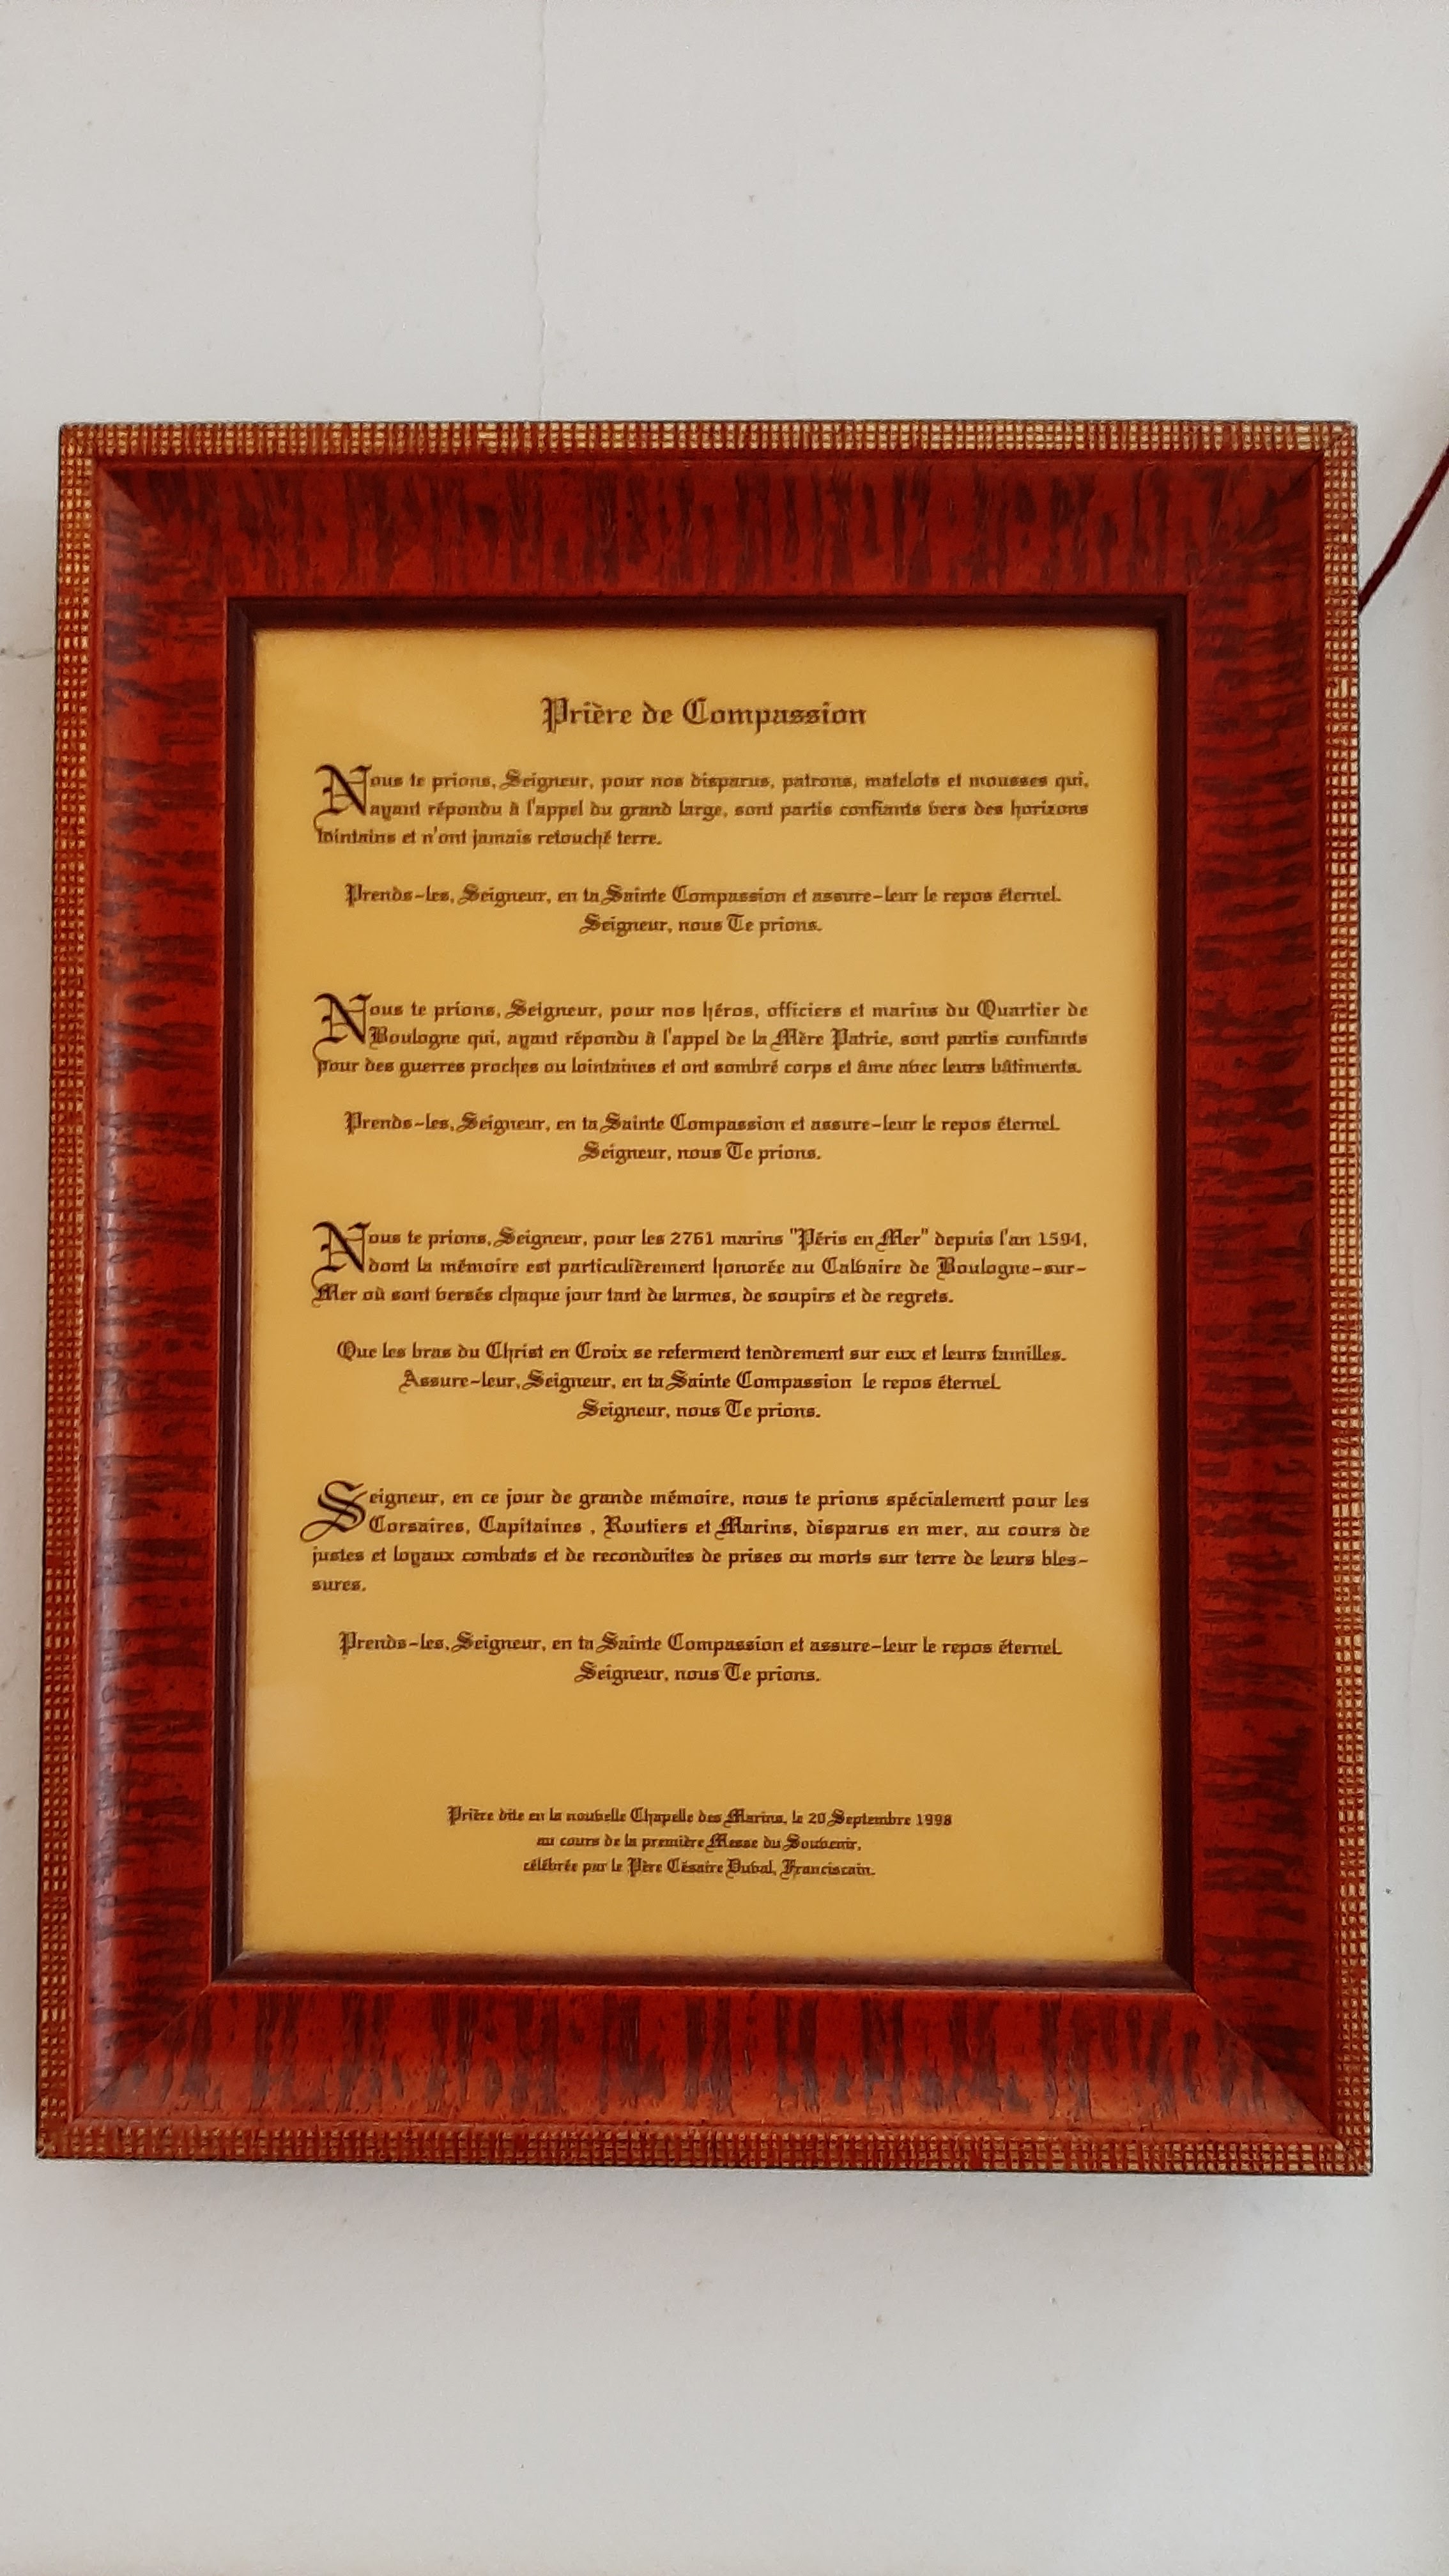 Prière de Compassion
Nous te prions, Seigneur, pour nos disparus, patrons, matelots et mousses qui,
ayant répondu à l'appel du grand large, sont partis confiants vers des horizons
lointains et n'ont jamais retouché terre.
Prends-les, Seigneur, en ta Sainte Compassion et assure-leur le repos éternel.
Seigneur, nous Te prions.
Nous te prions, Seigneur, pour nos héros, officiers et marins du Quartier de
Boulogne qui, ayant répondu à l'appel de la Mère Patrie, sont partis confiants
pour des guerres proches ou lointaines et ont sombré corps et âme avec leurs bâtiments.
Prends-les, Seigneur, en ta Sainte Compassion et assure-leur le repos éternel.
Seigneur, nous Te prions.
Nous te prions, Seigneur, pour les 2761 marins "Péris en Mer" depuis l'an 1594,
dont la mémoire est particulièrement honorée au Calvaire de Boulogne-sur-
Mer où sont versés chaque jour tant de larmes, de soupirs et de regrets.
Que les bras du Christ en Croix se referment tendrement sur eux et leurs familles.
Assure-leur, Seigneur, en ta Sainte Compassion le repos éternel.
Seigneur, nous Te prions.
Seigneur, en ce jour de grande mémoire, nous te prions spécialement pour les
Corsaires, Capitaines , Routiers et Marins, disparus en mer, au cours de
justes et loyaux combats et de reconduites de prises ou morts sur terre de leurs bles-
sures.
Prends-les, Seigneur, en ta Sainte Compassion et assure-leur le repos éternel.
Seigneur, nous Te prions.
Prière dite en la nouvelle Chapelle des Marins, le 20 Septembre 1998
au cours de la première Messe du Souvenir,
célébrée par le Père Césaire Duval, Franciscain.